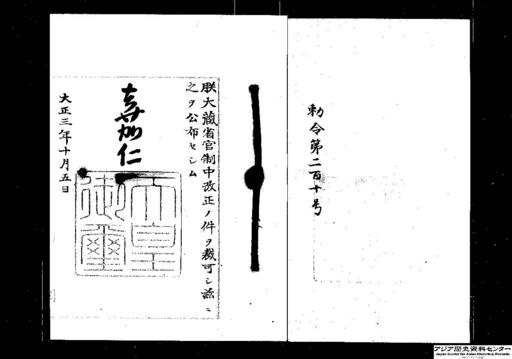 勅令第二百十号
朕大蔵省官制中改正ノ件ヲ裁可シ茲ニ
之ヲ公布セシム
嘉仁
天皇御璽
大正三年十月五日
アジア歴史資料センター
Japan Center for Asian Historical Records